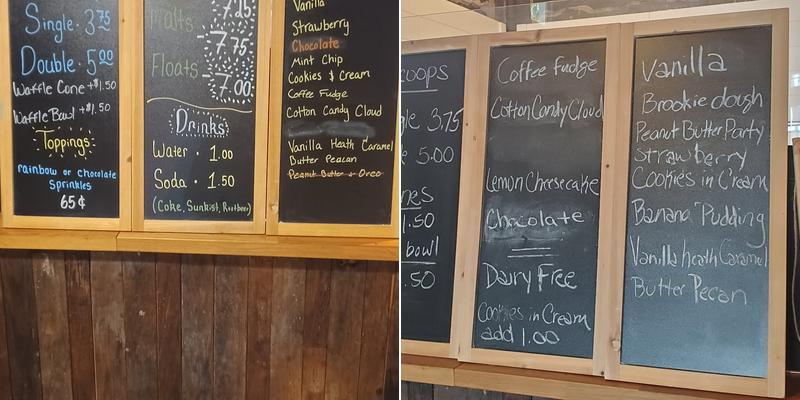 Single · 3.75
Double · 5.00
Waffle Cone +$1.50
Waffle Bowl +$1.50
Toppings
rainbow or chocolate
Sprinkles
65¢
Malts
7.75
Floats
7.00
Drinks
Water · 1.00
Soda · 1.50
(Coke, Sunkist, Rootbeer)
Vanilla
Strawberry
Chocolate
Mint Chip
Cookies & Cream
Coffee Fudge
Cotton Candy Cloud
Vanilla Heath Caramel
Butter Peacan
Peanut Butter & Oreo
coops
gle 3.75
e 5.00
nes
1.50
bowl
.50
Coffee fudge
Cotton Candy Cloud
Lemon Cheesecake
Chocolate
Dairy Free
Cookies in Cream
add 1.00
Vanilla
Brookie dough
Peanut Butter Party
Strawberry
Cookies in Cream
Banana Pudding
Vanilla heath Caramel
Butter Pecan